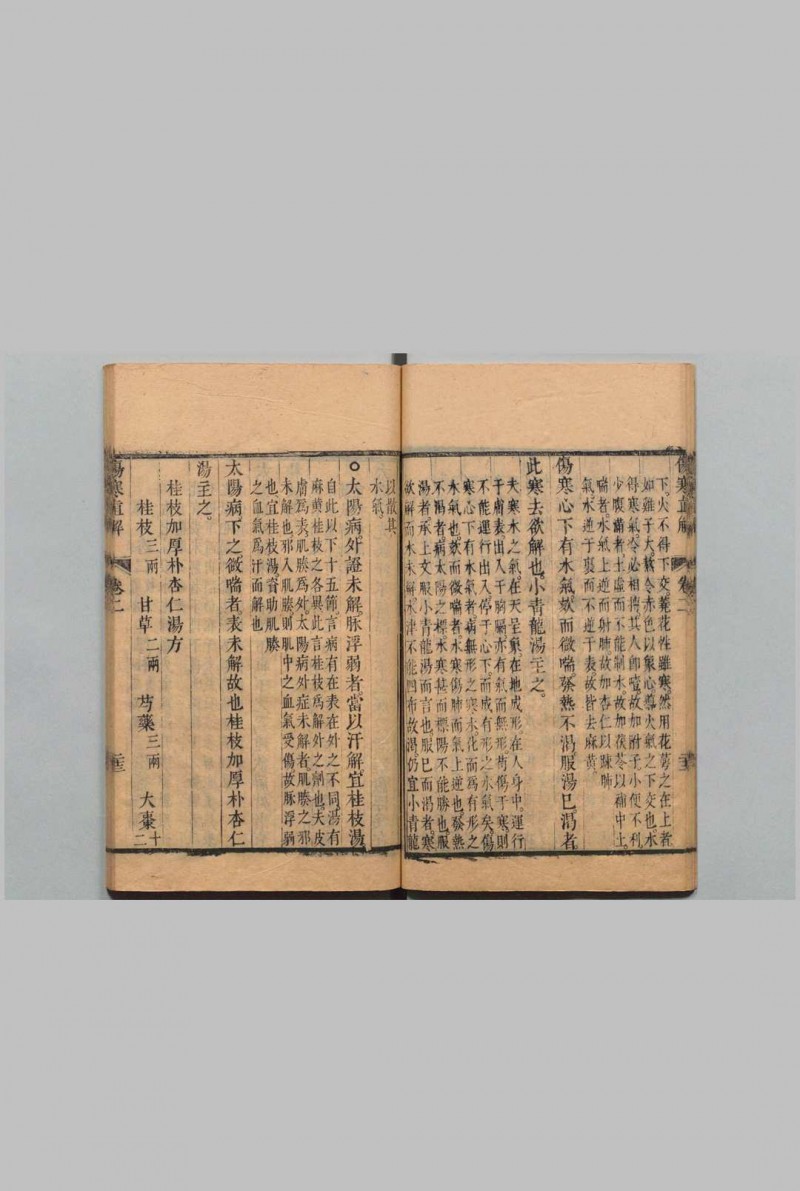 傷寒直解
卷二
下火不得下交芫花性雖寒然用花蕚之在上者
如雞子大熬令赤色以象心導火氣之下交也水
得寒氣令必相搏其人卽𩜟故加附子小便不利
少腹滿者土虛而不能制水故加茯苓以補中土
喘者水氣上逆而射肺故加杏仁以疎肺
氣水逆于裏而不逆于表故皆去麻黃
傷寒心下有水氣欬而微喘發熱不渴服湯已渴者
此寒去欲解也小青龍湯主之
夫寒水之氣在天呈象在地成形在人身中運行
于膚表出入于胸膈亦有氣而無形苟傷于寒則
不能運行出入停于心下而成有形之水氣矣傷
寒心下有水氣者病無形之寒水化而爲有形之
水氣也欬而微喘者水寒傷肺而氣上逆也發熱
不渴者病太陽之標水寒甚而標陽不能勝也服
湯者承上文服小青龍湯而言也服已而渴者寒
欲解而水未解水津不能四布故渴仍宜小青龍
以散其
水氣
○太陽病外證未解脉浮弱者當以汗解宜桂枝湯
自此以下十五節言病有在表在外之不同湯有
麻黃桂枝之各異此言桂枝爲解外之劑也夫皮
膚爲表肌腠爲外太陽病外症未解者肌腠之邪
未解也邪入肌腠則肌中之血氣受傷故脉浮弱
也宜桂枝湯資助肌腠
之血氣爲汗而解也
太陽病下之微喘者表未解故也桂枝加厚朴杏仁
湯主之
桂枝加厚朴杏仁湯方
桂枝三兩 甘草二兩 芍藥三兩 大棗十二
傷寒直解
卷二